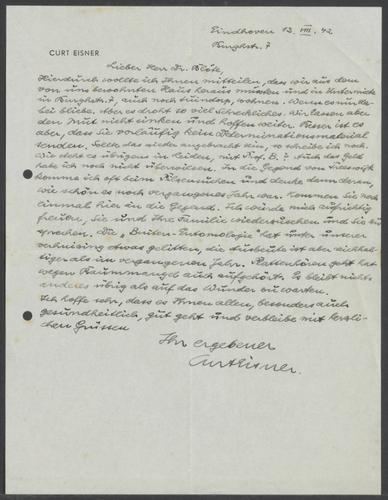 Eindhoven 13. VIII. 42
Burghstr. 7
CURT EISNER
Lieber Herr Dr. Blöte,
Hierdurch wollte ich Ihnen mitteilen, dass wir aus dem
von uns bewohnten Haus heraus mussten und in Untermiete
in Burghstr. 7, auch noch Eindhoven, wohnen. Wenn es nur da-
bei bliebe. Aber es droht so viel Schreckliches. Wir lassen aber
den Mut nicht sinken und hoffen weiter. Besser ist es
aber, dass Sie vorläufig kein Determinationsmaterial
senden. Sollte das wieder angebracht sein, so schreibe ich noch.
Wie steht es übrigens in Leiden, mit Prof. B.? Auch das Geld
habe ich noch nicht überwiesen. In die Gegend von
komme ich oft beim und denke dann daran,
wie schön es noch vergangenes Jahr war. Kommen Sie noch
einmal hier in die Gegend. Ich würde mich aufrichtig
freuen, Sie und Ihre Familie wiederzusehen und Sie zu
sprechen. Die „Buiten-Entomologie" hat unter unserer
verhuizing etwas gelitten, die Ausbeute ist aber reichhal-
tiger als im vergangenen Jahr. Plattenhören geht hat
wegen Raummangel auch aufgehört. Es bleibt nichts
anderes übrig als auf das Wunder zu warten.
Ich hoffe sehr, dass es Ihnen allen, besonders auch
gesundheitlich, gut geht und verbleibe mit herzli-
chen Grüssen
Ihr ergebener
Curt Eisner.